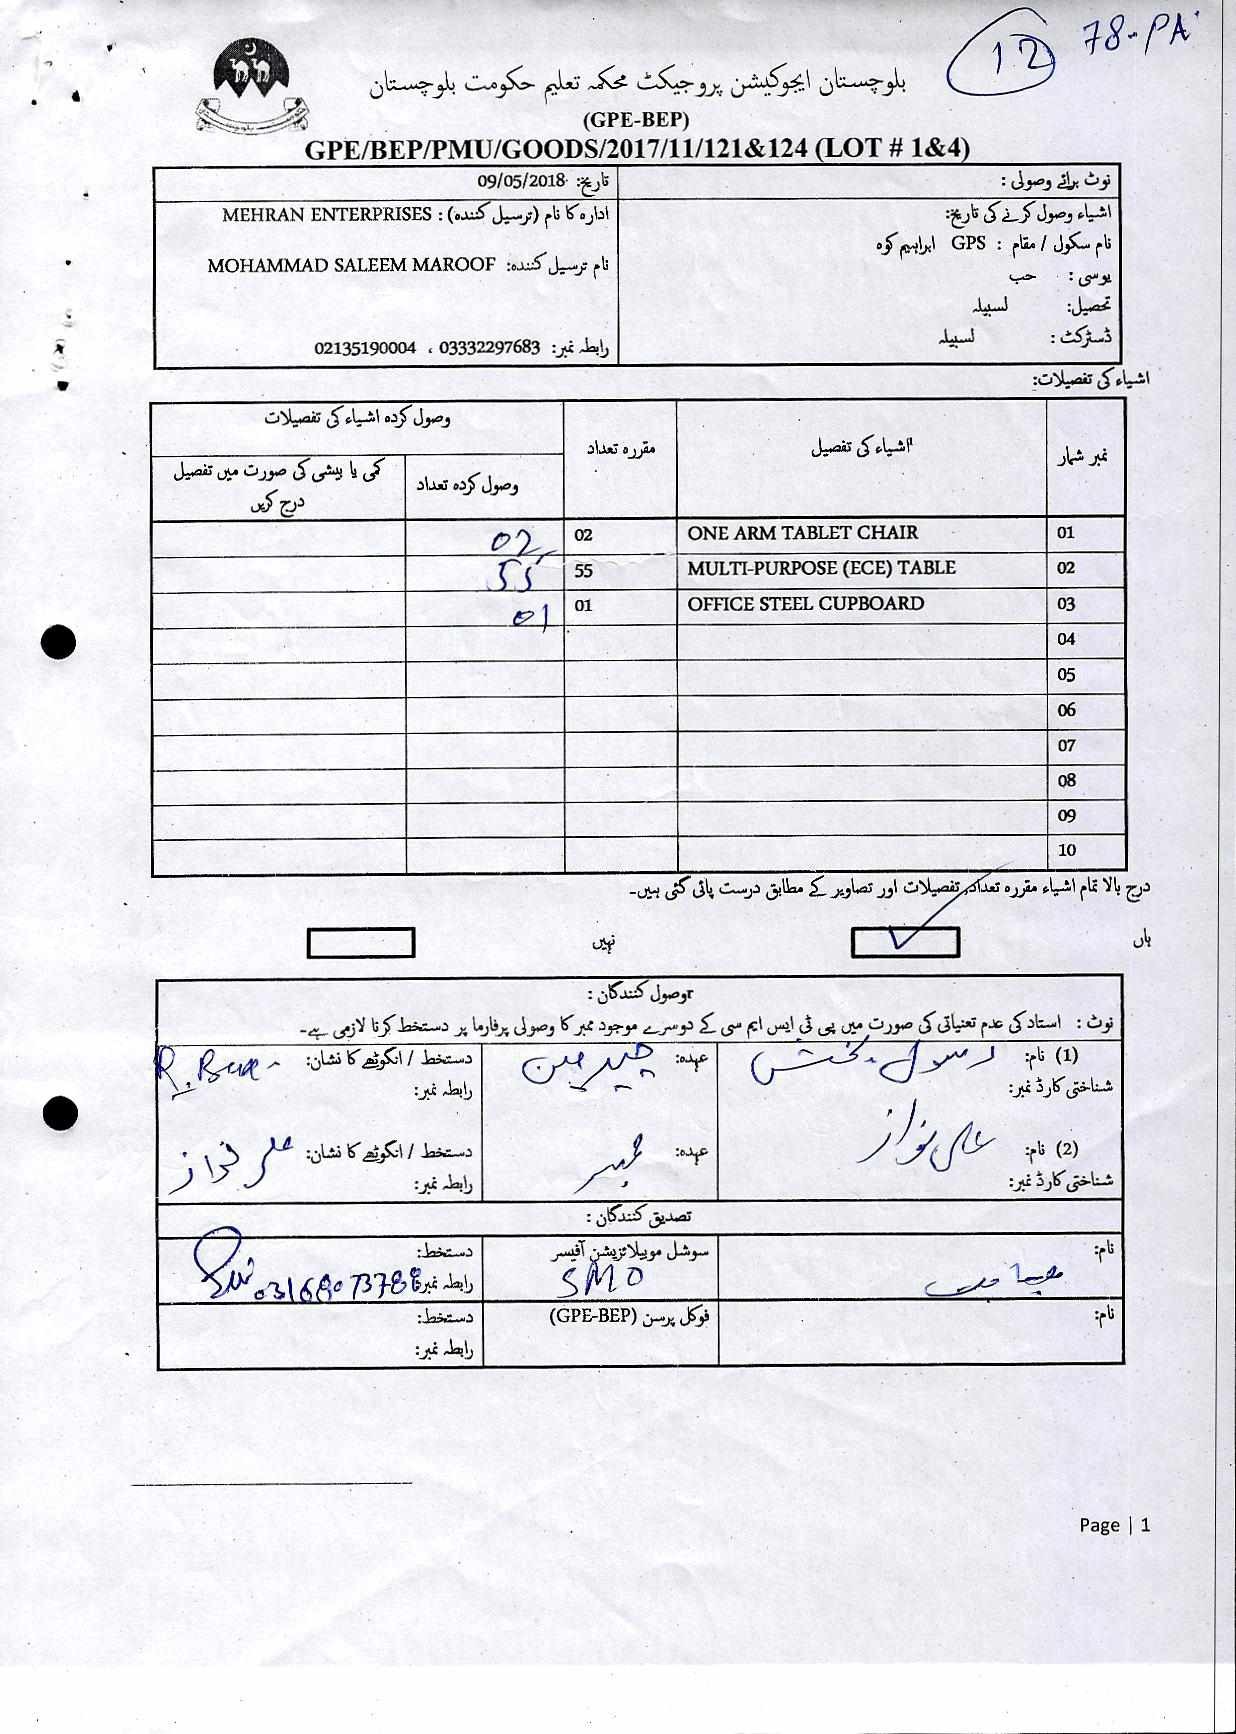 12 78-PA
بلوچستان ایجوکیشن پروجیکٹ محکمہ تعلیم حکومت بلوچستان
(GPE-BEP)
GPE/BEP/PMU/GOODS/2017/11/121&124 (LOT # 1&4)
نوٹ برائے وصولی :
اشیاء وصول کرنے کی تاریخ:
نام سکول / مقام : GPS ابراہیم کوہ
یوسی : حب
تحصیل: لسبیلہ
ڈسٹرکٹ : لسبیلہ
تاریخ: 09/05/2018
ادارہ کا نام (ترسیل کنندہ) : MEHRAN ENTERPRISES
نام ترسیل کنندہ: MOHAMMAD SALEEM MAROOF
رابطہ نمبر: 03332297683 ، 02135190004
اشیاء کی تفصیلات:
نمبر شمار اشیاء کی تفصیل مقررہ تعداد وصول کردہ اشیاء کی تفصیلات
وصول کردہ تعداد کمی یا بیشی کی صورت میں تفصیل درج کریں
01 ONE ARM TABLET CHAIR 02 02
02 MULTI-PURPOSE (ECE) TABLE 55 55
03 OFFICE STEEL CUPBOARD 01 01
04
05
06
07
08
09
10
درج بالا تمام اشیاء مقررہ تعداد، تفصیلات اور تصاویر کے مطابق درست پائی گئی ہیں۔
ہاں نہیں
وصول کنندگان :
نوٹ : استاد کی عدم تعنیاتی کی صورت میں پی ٹی ایس ایم سی کے دوسرے موجود ممبر کا وصولی پرفارما پر دستخط کرنا لازمی ہے۔
(1) نام: رسول بخش عہدہ: چیرمین دستخط / انگوٹھے کا نشان:
شناختی کارڈ نمبر: رابطہ نمبر:
(2) نام: علی نواز عہدہ: ممبر دستخط / انگوٹھے کا نشان: علی نواز
شناختی کارڈ نمبر: رابطہ نمبر:
تصدیق کنندگان :
نام: سوشل موبیلائزیشن آفیسر دستخط:
SMO رابطہ نمبر:
نام: فوکل پرسن (GPE-BEP) دستخط:
رابطہ نمبر:
Page | 1